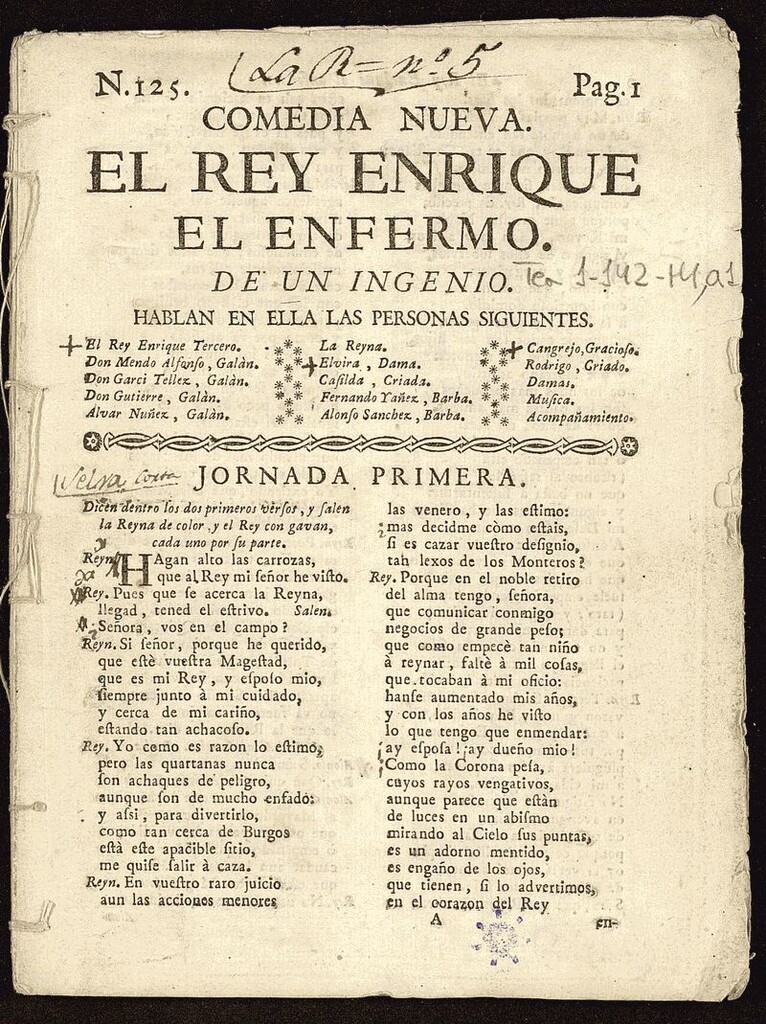 La R= nº 5
N.125.
Pag.1
COMEDIA NUEVA.
EL REY ENRIQUE
EL ENFERMO.
DE UN INGENIO.
Tea 1-142-14,a1
HABLAN EN ELLA LAS PERSONAS SIGUIENTES.
El Rey Enrique Tercero.
Don Mendo Alfonſo, Galàn.
Don Garci Tellez, Galàn.
Don Gutierre, Galàn.
Alvar Nuñez, Galàn.
La Reyna.
Elvira, Dama.
Caſilda, Criada.
Fernando Yañez, Barba.
Alonſo Sanchez, Barba.
Cangrejo, Gracioſo.
Rodrigo, Criado.
Damas.
Muſica.
Acompañamiento.
Selva corta
JORNADA PRIMERA.
Dicen dentro los dos primeros verſos, y ſalen
la Reyna de color, y el Rey con gavan,
cada uno por ſu parte.
Reyn. HAgan alto las carrozas,
que al Rey mi ſeñor he viſto.
Rey. Pues que ſe acerca la Reyna,
llegad, tened el eſtrivo. Salen.
¿Señora, vos en el campo?
Reyn. Si ſeñor, porque he querido,
que eſtè vueſtra Mageſtad,
que es mi Rey, y eſpoſo mio,
ſiempre junto à mi cuidado,
y cerca de mi cariño,
eſtando tan achacoſo.
Rey. Yo como es razon lo eſtimo,
pero las quartanas nunca
ſon achaques de peligro,
aunque ſon de mucho enfado:
y aſsi, para divertirlo,
como tan cerca de Burgos
eſtà eſte apacible ſitio,
me quiſe ſalir à caza.
Reyn. En vueſtro raro juicio
aun las acciones menores
las venero, y las eſtimo:
¿mas decidme còmo eſtais,
ſi es cazar vueſtro deſignio,
tan lexos de los Monteros?
Rey. Porque en el noble retiro
del alma tengo, ſeñora,
que comunicar conmigo
negocios de grande peſo;
que como empecè tan niño
à reynar, faltè à mil coſas,
que tocaban à mi oficio:
hanſe aumentado mis años,
y con los años he viſto
lo que tengo que enmendar:
¡ay eſpoſa! ¡ay dueño mio!
¡Como la Corona peſa,
cuyos rayos vengativos,
aunque parece que eſtàn
de luces en un abiſmo
mirando al Cielo ſus puntas,
es un adorno mentido,
es engaño de los ojos,
que tienen, ſi lo advertimos,
en el corazon del Rey
A
en-